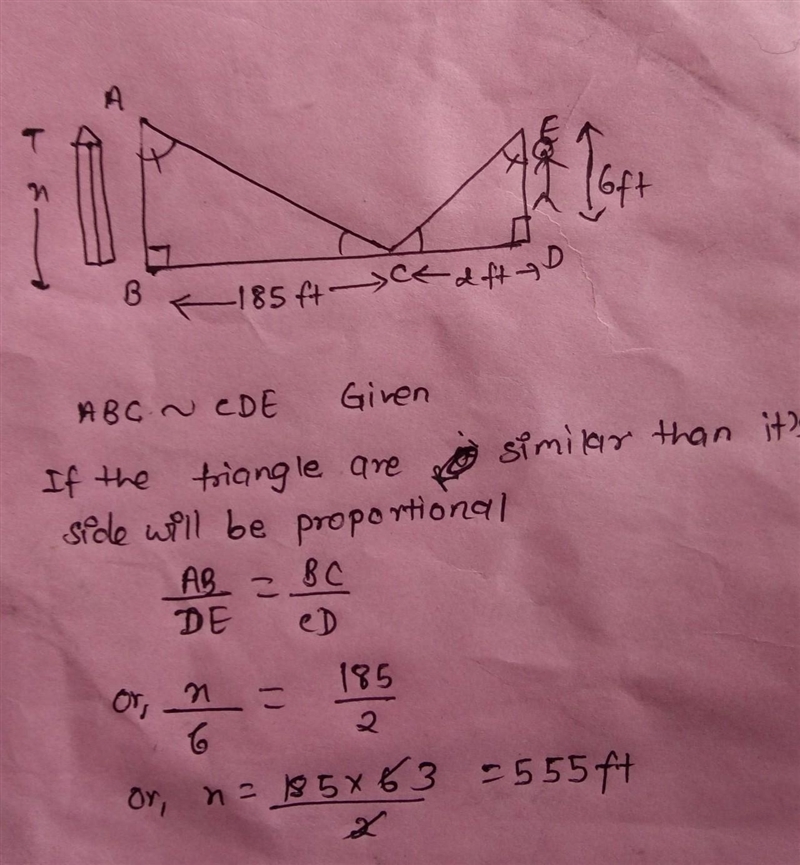 A
T
n
E
6ft
B
185 ft
C
2 ft
D
ABC ~ CDE Given
If the triangle are similar than it's
side will be proportional
AB/DE = BC/CD
or, n/6 = 185/2
or, n = 185 x 6 3 / 2 = 555 ft